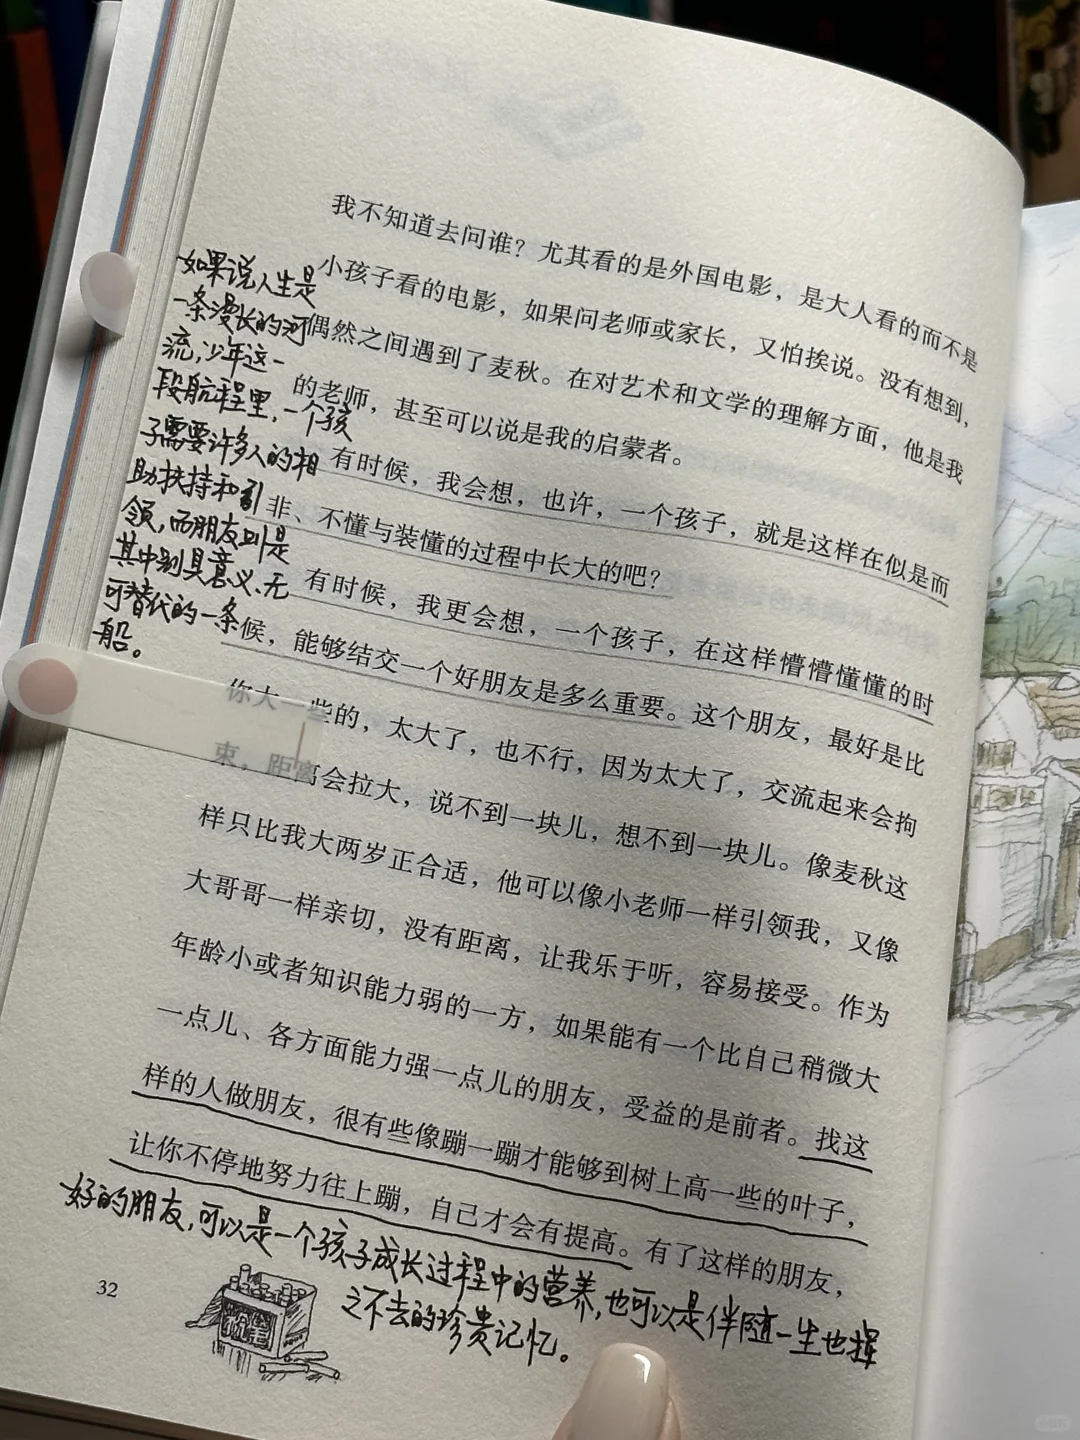 我不知道去问谁？尤其看的是外国电影，是大人看的而不是
小孩子看的电影，如果问老师或家长，又怕挨说。没有想到，
偶然之间遇到了麦秋。在对艺术和文学的理解方面，他是我
的老师，甚至可以说是我的启蒙者。
有时候，我会想，也许，一个孩子，就是这样在似是而
非、不懂与装懂的过程中长大的吧？
有时候，我更会想，一个孩子，在这样懵懵懂懂的时
候，能够结交一个好朋友是多么重要。这个朋友，最好是比
你大一些的，太大了，也不行，因为太大了，交流起来会拘
束，距离会拉大，说不到一块儿，想不到一块儿。像麦秋这
样只比我大两岁正合适，他可以像小老师一样引领我，又像
大哥哥一样亲切，没有距离，让我乐于听，容易接受。作为
年龄小或者知识能力弱的一方，如果能有一个比自己稍微大
一点儿、各方面能力强一点儿的朋友，受益的是前者。找这
样的人做朋友，很有些像蹦一蹦才能够到树上高一些的叶子，
让你不停地努力往上蹦，自己才会有提高。有了这样的朋友，
如果说人生是
一条漫长的河
流，少年这一
段航程里，一个孩
子需要许多人的相
助扶持和引
领，而朋友则是
其中别具意义、无
可替代的一条
船。
好的朋友，可以是一个孩子成长过程中的营养，也可以是伴随一生也挥
之不去的珍贵记忆。
32